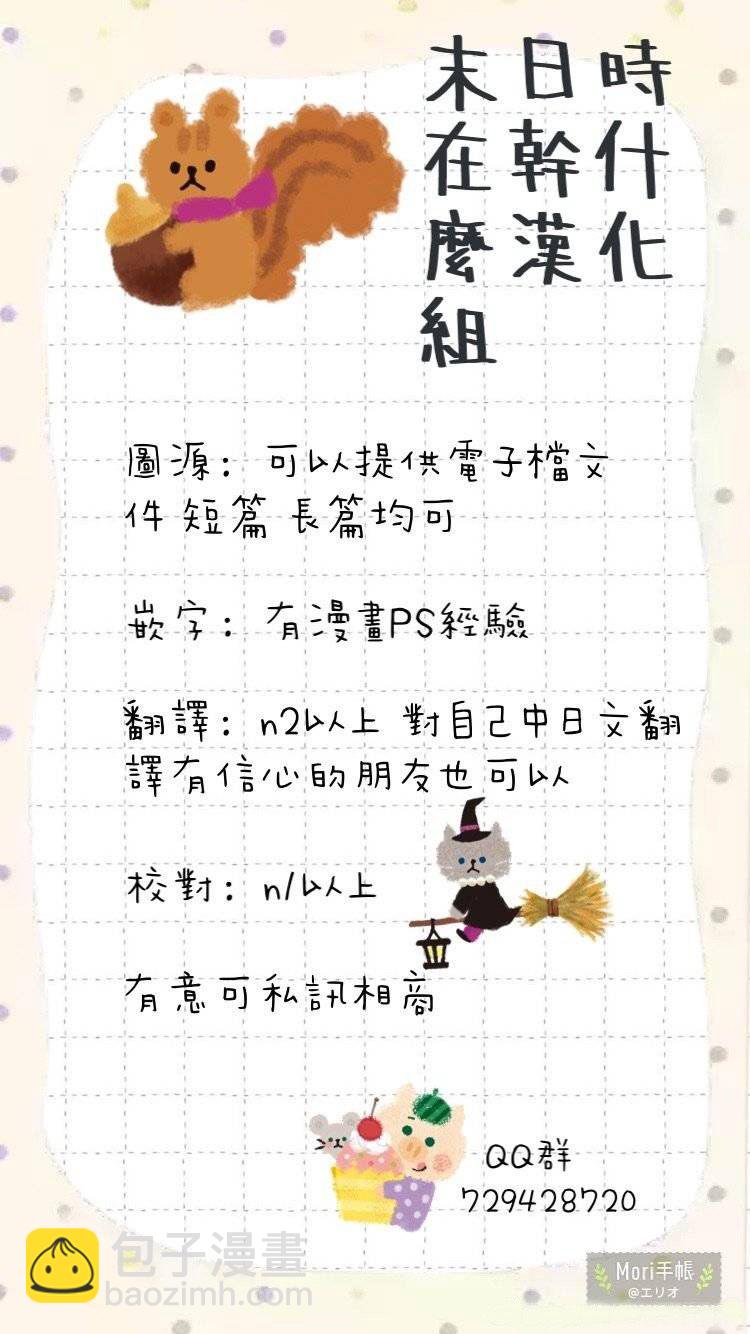 末日時
在幹什
麼漢化
組
圖源：可以提供電子檔文
件 短篇 長篇均可
嵌字：有漫畫PS經驗
翻譯：n2以上 對自己中日文翻
譯有信心的朋友也可以
校對：n1以上
有意可私訊相商
QQ群
729428720
包子漫畫
baozimh.com
Mori手帳
@エリオ